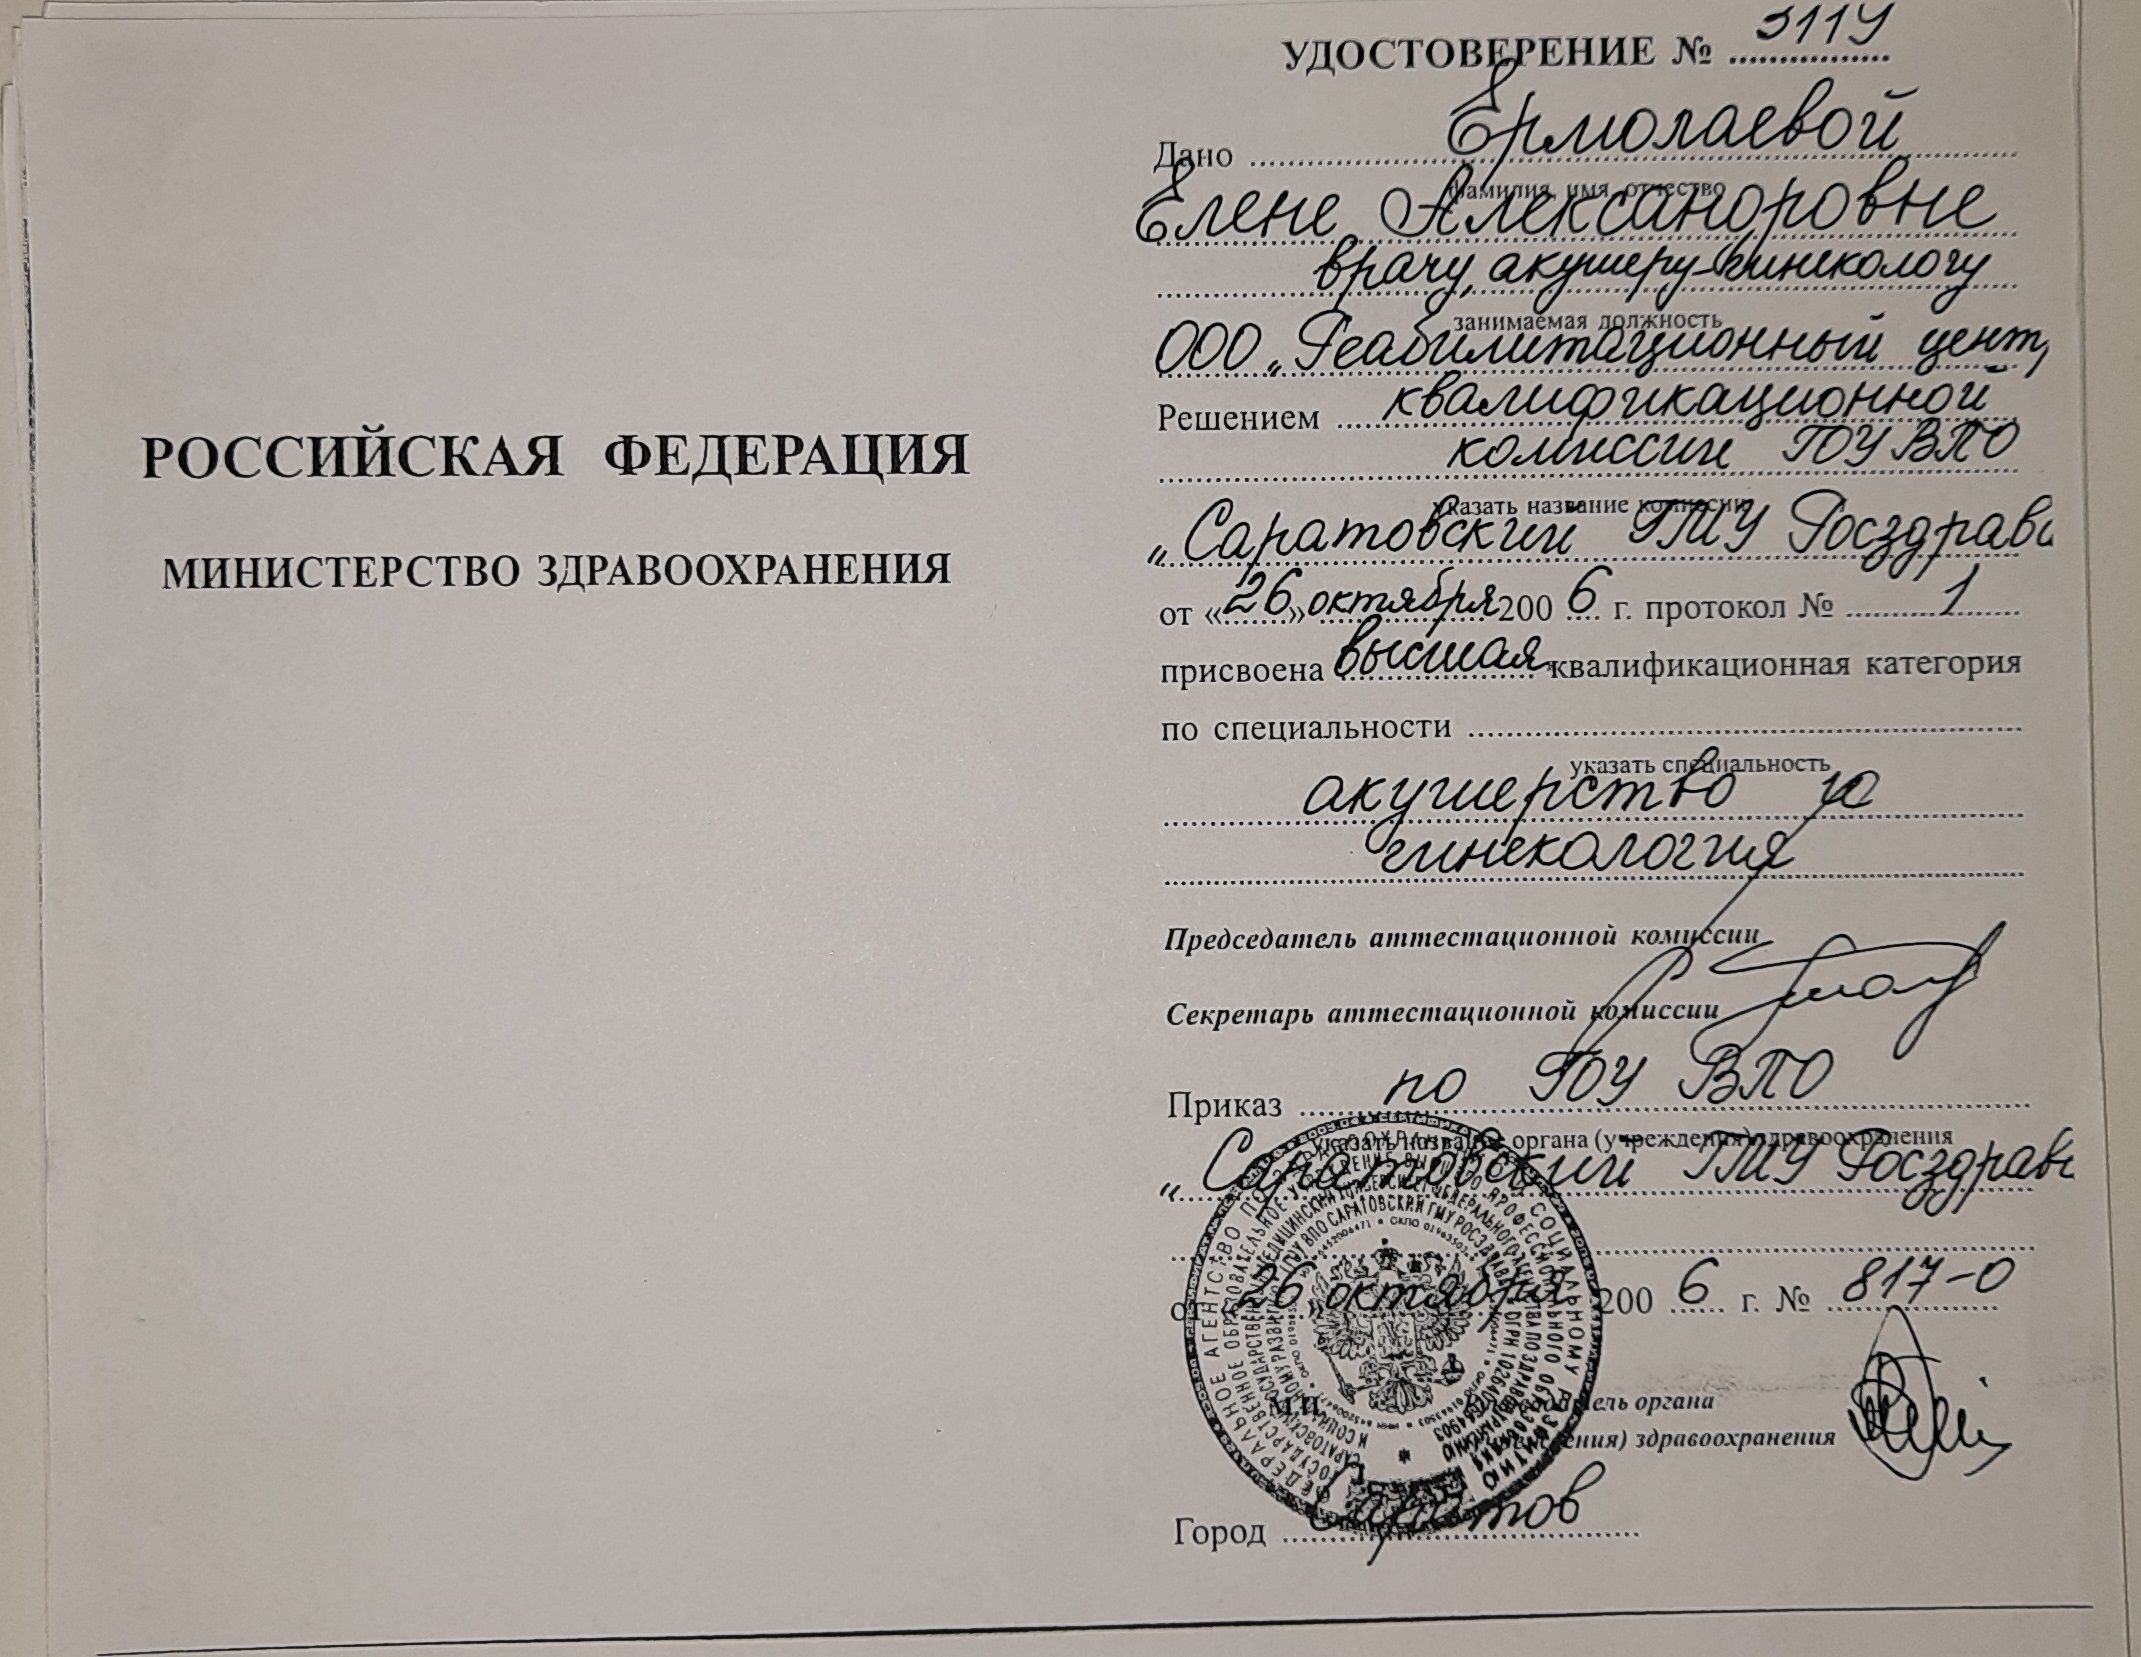 РОССИЙСКАЯ ФЕДЕРАЦИЯ
МИНИСТЕРСТВО ЗДРАВООХРАНЕНИЯ
УДОСТОВЕРЕНИЕ №
Дано Ермолаевой
фамилия, имя, отчество
Елене Александровне
врачу, акушеру-гинекологу
занимаемая должность
ООО „Реабилитационный цент
Решением квалификационной
комиссии ГОУ ВПО
указать название комиссии
„Саратовский ГМУ Росздрав
от «26» октября 2006 г. протокол № 1
присвоена высшая квалификационная категория
по специальности
указать специальность
акушерство и
гинекология
Председатель аттестационной комиссии
Секретарь аттестационной комиссии
Приказ по ГОУ ВПО
указать название органа (учреждения) здравоохранения
„Саратовский ГМУ Росздрав
от «26» октября 2006 г. № 817-О
М.П.
органа
здравоохранения
Город Саратов